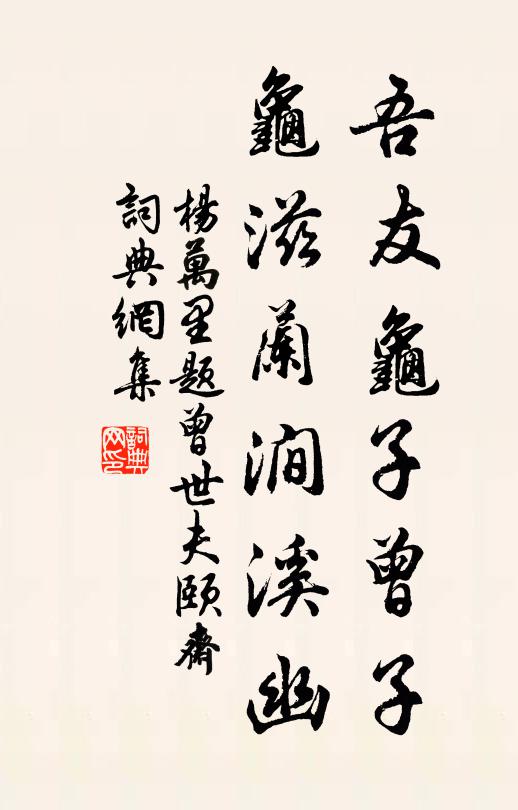 吾友龜子曾子
龜滋蘭澗溪幽
楊萬里題曾世夫頤齋
詞典網集
詞典网印